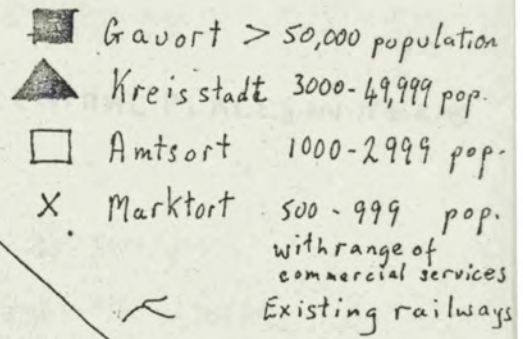 Gavort > 50,000 population
Kreisstadt 3000-49,999 pop.
Amtsort 1000-2999 pop.
X Marktort 500-999 pop.
with range of
commercial services
Existing railways